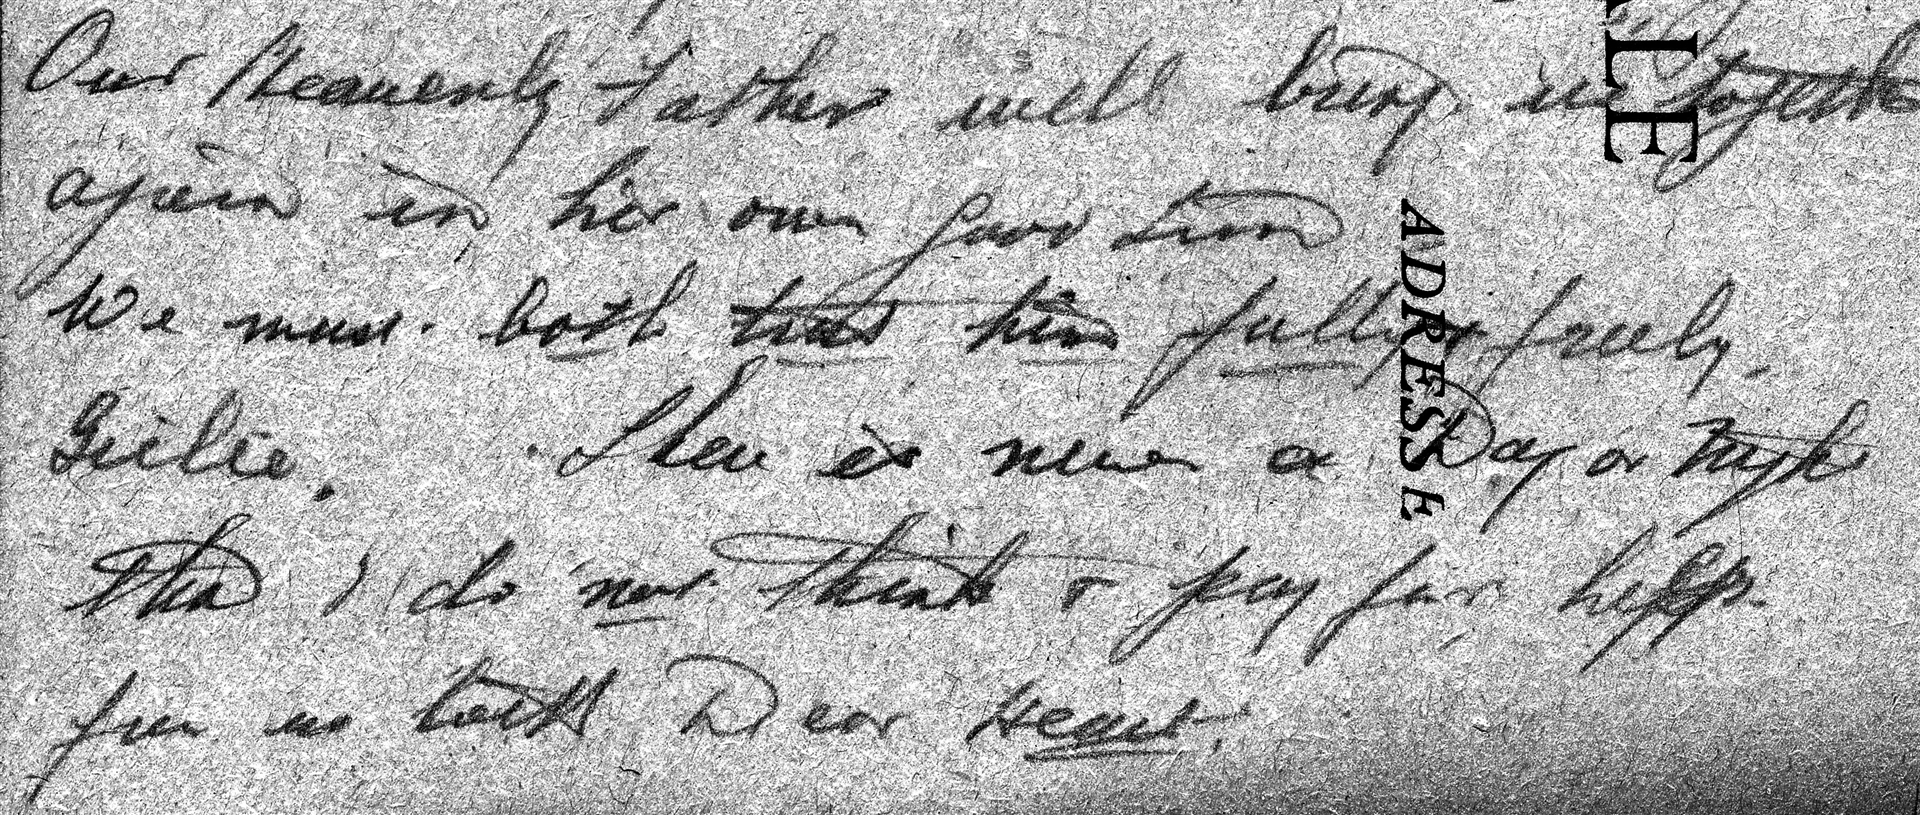 Our Heavenly Father will bring us together
again in his own good time
We must both trust him fully & freely.
Girlie. There is never a Day or Night
that I do not think & pray for help.
for us both Dear Heart.
LE
ADRESSE